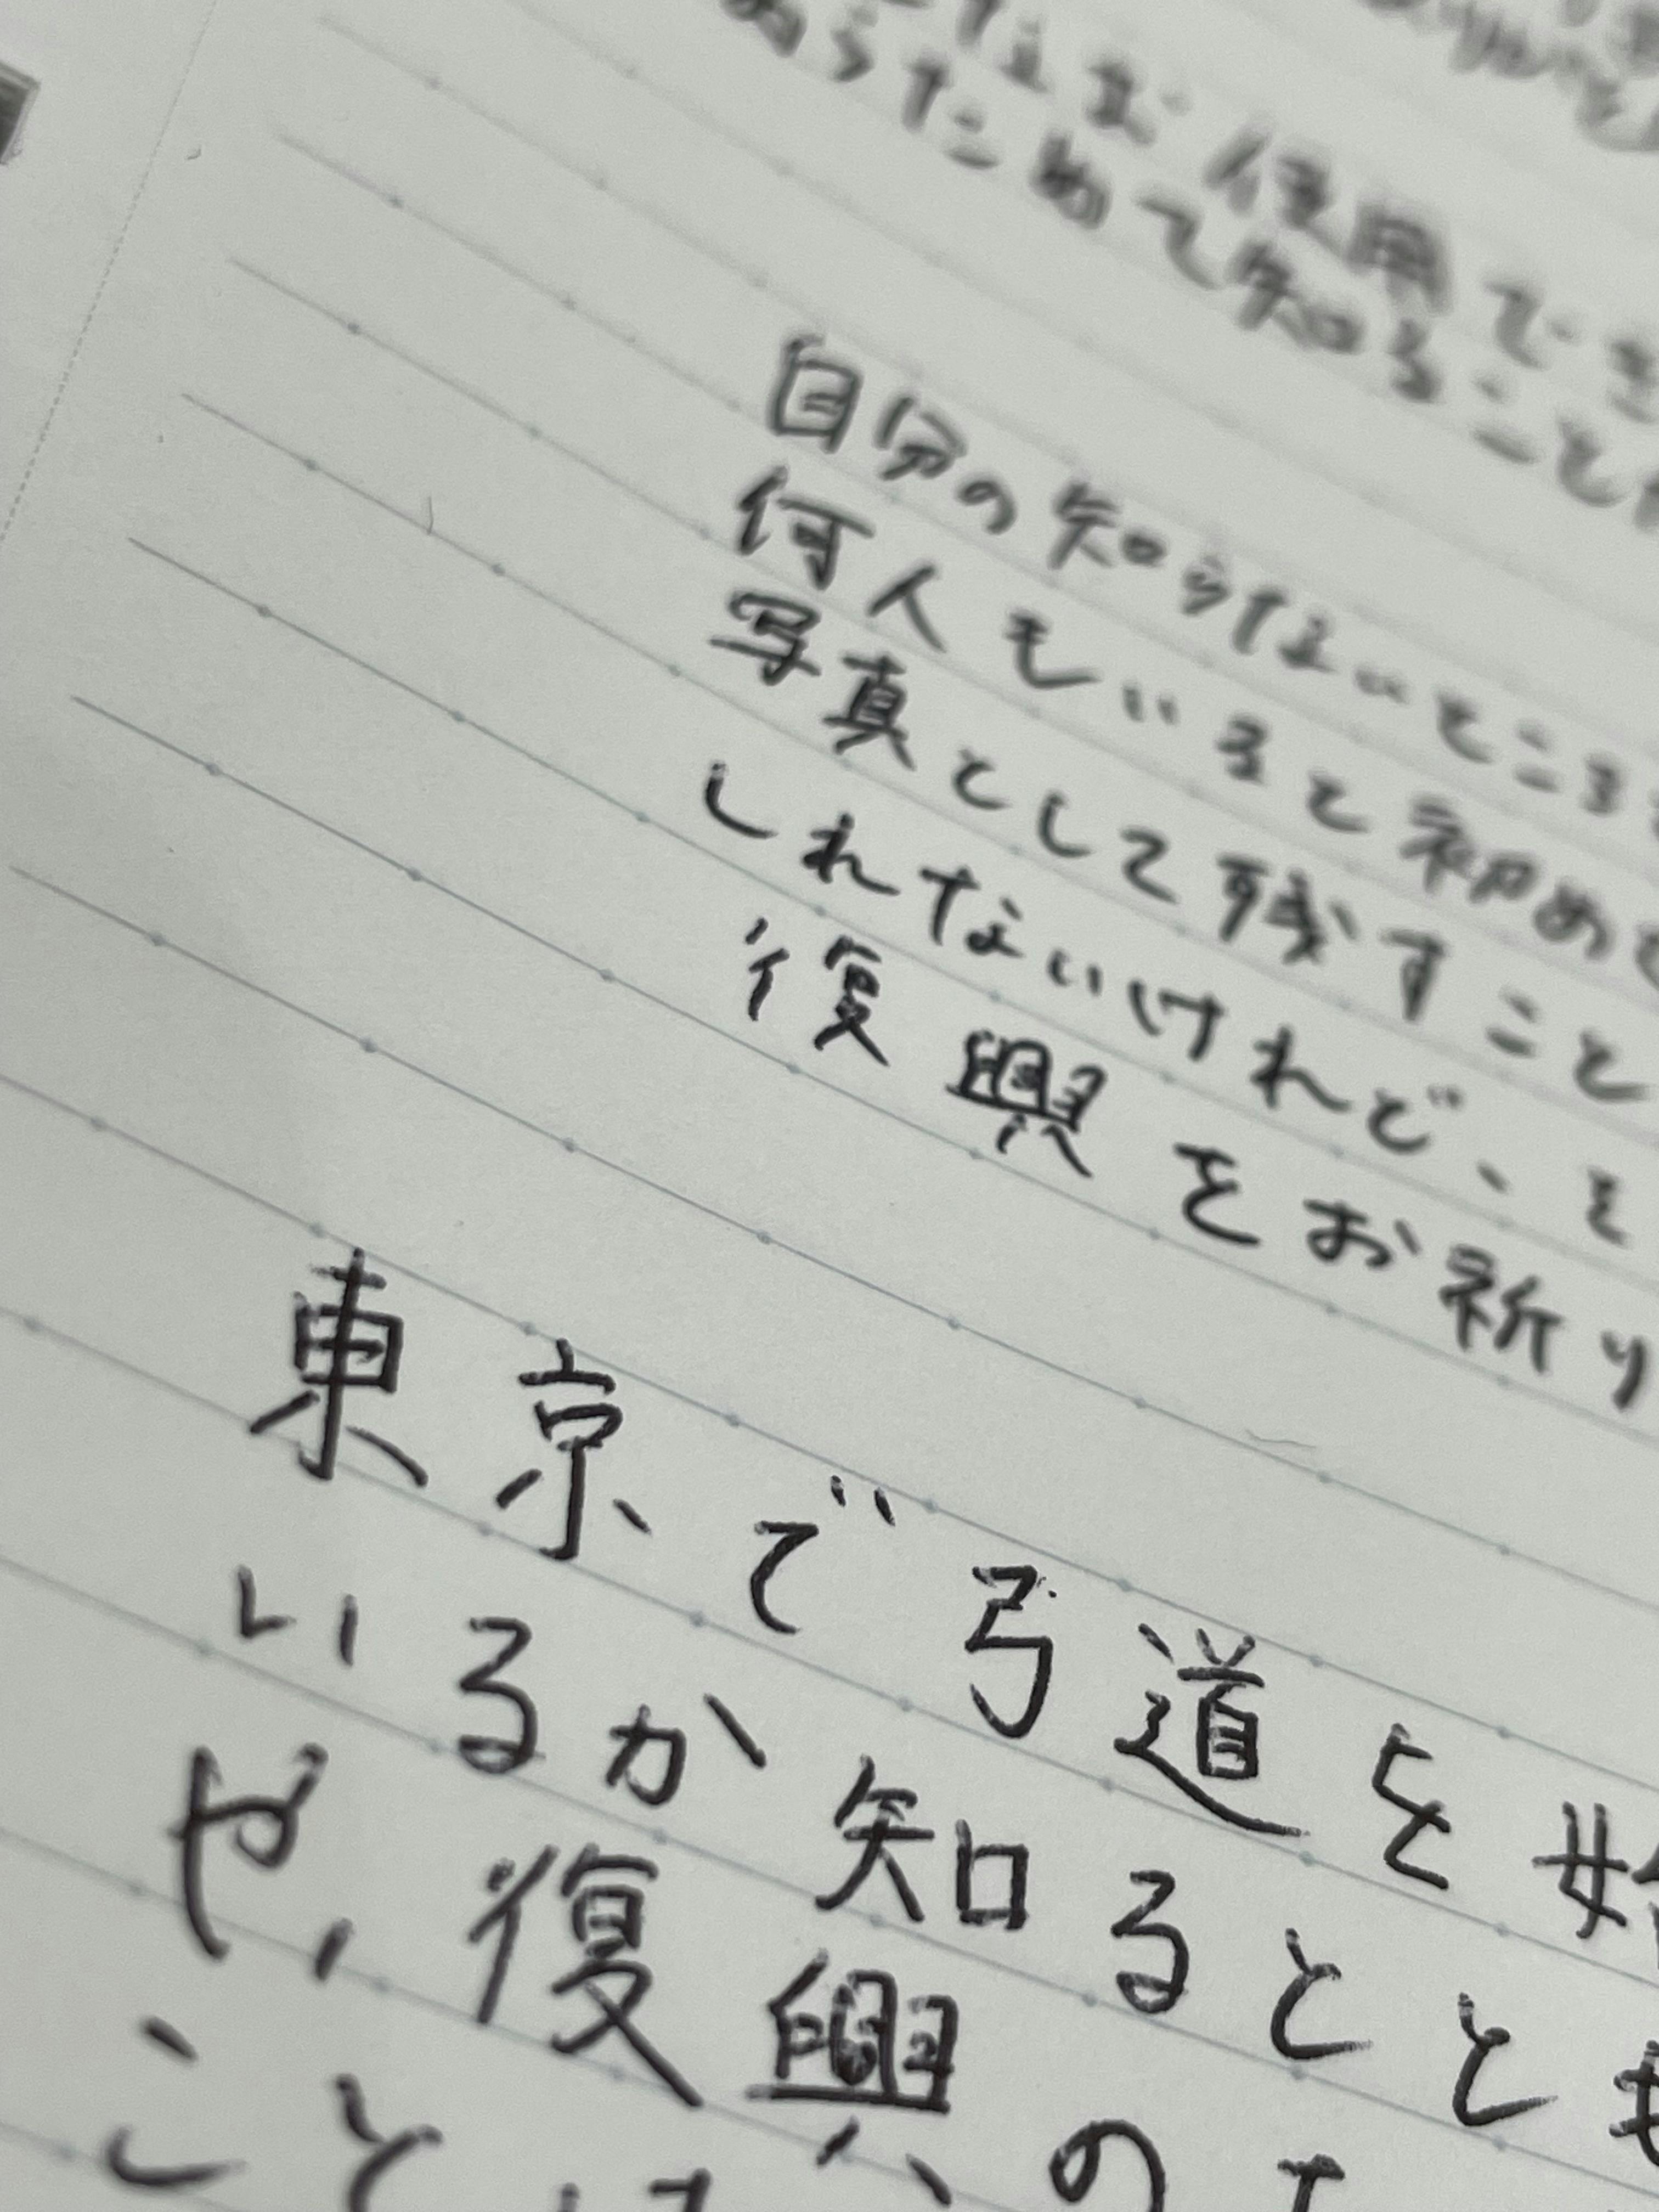 なお使用でき
あらためて知ること
自分の知らないところ
何人もいると初めて
写真として残すこと
しれないけれど、そ
復興をお祈り
東京で弓道を始
いるか知るととも
や、復興の
こと